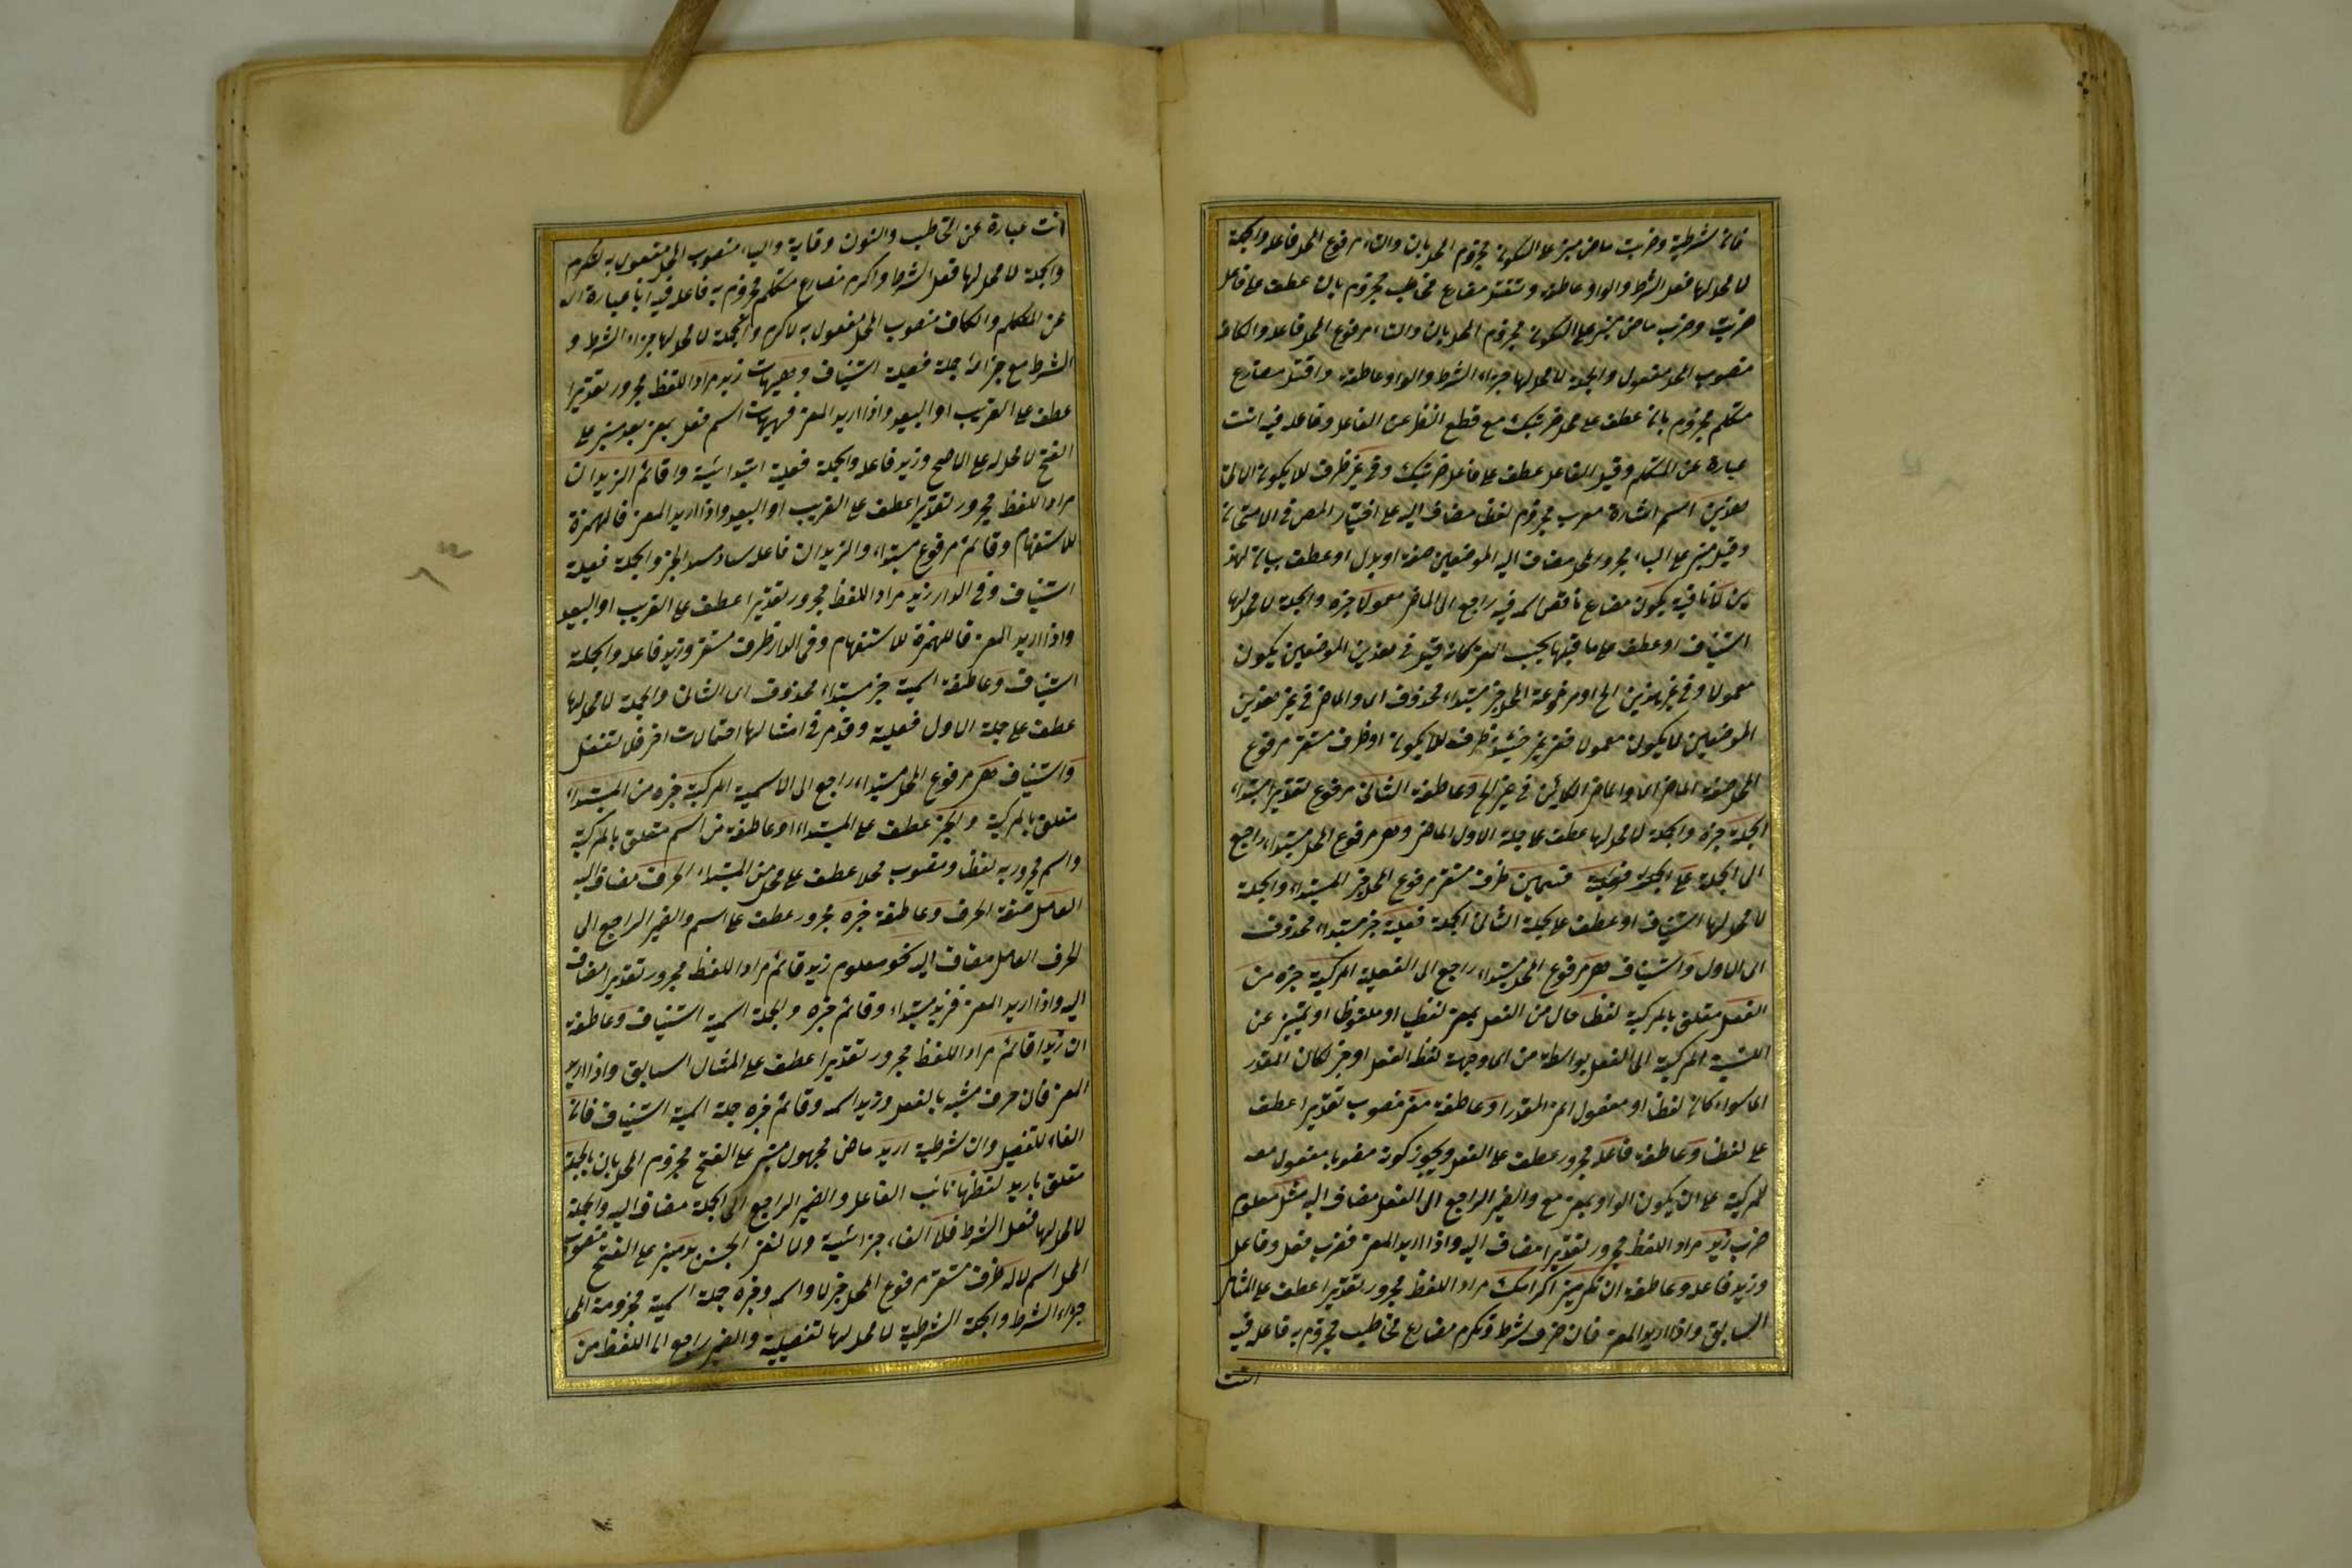 فان شرطية وضربت ماض مبنى على السكون مجزوم المحل بان والتاء مرفوع المحل فاعله والجملة
لا محل لها فعل الشرط والواو عاطفة وتقتل مضارع مخاطب مجزوم بان عطف على فاعل
ضربت وضرب ماض مبنى على السكون مجزوم المحل بان والتاء مرفوع المحل فاعله والكاف
منصوب المحل مفعول والجملة لا محل لها جزاء الشرط والواو عاطفة واقتل مضارع
متكلم مجزوم بان عطف على محل ضربتك مع قطع النظر عن الفاعل وفاعله فيه انت
عبارة عن المتكلم وقيل الفاعل عطف على فاعل ضربتك وفى غير ظرف لا يكون
هذين اسم اشارة معرب مجزوم لفظا مضاف اليه على اختيار المص فى الامتحان
وقيل مبنى على الياء مجرور المحل مضاف اليه الموضعين صفة او بدل او عطف بيان لهذ
ين لا نافية يكون مضارع ناقص اسمه فيه راجع الى الماضى معمولا خبره والجملة لا محل لها
استيناف او عطف على ما قبلها بحسب المعنى كانه قيل فى هذين الموضعين يكون
معمولا وفى غير هذين الخ او مرفوعة المحل خبر مبتداء محذوف اى والماضى فى غير هذين
الموضعين لا يكون معمولا ففى غير حينئذ ظرف لا يكون او ظرف مستقر مرفوع
المحل صفة الماضى اى والماضى الكائن فى غير الخ وعاطفة الثانى مرفوع تقديرا مبتداء
الجملة خبره والجملة لا محل لها عطف على جملة الاول الماضى وهى مرفوع المحل مبتداء راجع
الى الجملة على الجملة فعلية قسمين ظرف مستقر مرفوع المحل خبر المبتداء والجملة
لا محل لها استيناف او عطف على جملة الثانى الجملة فعلية خبر مبتداء محذوف
اى الاول واستيناف هى مرفوع المحل مبتداء راجع الى الفعلية المركبة خبره من
الفعل متعلق بالمركبة لفظا حال من الفعل بمعنى لفظيا او ملفوظا او تمييز عن
النسبة المركبة الى الفعل بواسطة من اى وجهة لفظ الفعل او خبر لكان المقدر
اى سواء كان لفظا او مفعول اعنى المقدر او عاطفة معنى منصوب تقديرا عطف
على لفظا وعاطفة فاعله مجرور عطف على الفعل ويجوز كونه منصوبا مفعول معه
للمركبة على ان يكون الواو بمعنى مع والضمير الراجع الى الفعل مضاف اليه مثل معلوم
ضرب زيد مراد اللفظ مجرور تقديرا مضاف اليه واذا اريد المعنى فضرب فعل وفاعل
وزيد فاعله وعاطفة ان تكرمنى اكرامك مراد اللفظ مجرور تقديرا عطف على المثال
السابق واذا اريد المعنى فان حرف شرط وتكرم مضارع مخاطب مجزوم به فاعله فيه
انت
انت عبارة عن المخاطب والنون وقاية والياء منصوب المحل مفعول به لتكرم
والجملة لا محل لها فعل الشرط واكرم مضارع متكلم مجزوم به فاعله فيه انا عبارة
عن المتكلم والكاف منصوب المحل مفعول به لاكرم والجملة لا محل لها جزاء الشرط و
الشرط مع جزائه جملة فعلية استيناف وهيهات زيد مراد اللفظ مجرور تقديرا
عطف على القريب او البعيد واذا اريد المعنى فهيهات اسم فعل بمعنى بعد مبنى على
الفتح لا محل له على الاصح وزيد فاعله والجملة فعلية ابتدائية واقائم الزيدان
مراد اللفظ مجرور تقديرا عطف على القريب او البعيد واذا اريد المعنى فالهمزة
للاستفهام وقائم مرفوع مبتداء والزيدان فاعله ساد مسد الخبر والجملة فعلية
استيناف وفى الدار زيد مراد اللفظ مجرور تقديرا عطف على القريب او البعيد
واذا اريد المعنى فالهمزة للاستفهام وفى الدار ظرف مستقر وزيد فاعله والجملة
استيناف وعاطفة اسمية خبر مبتداء محذوف اى الثانى والجملة لا محل لها
عطف على جملة الاول فعلية وقد مر فى امثالها احتمالات اخر فلا تغفل
واستيناف هى مرفوع المحل مبتداء راجع الى الاسمية المركبة خبره من المبتداء
متعلق بالمركبة والخبر عطف على المبتداء او عاطفة من اسم متعلق بالمركبة
واسم مجرور به لفظا ومنصوب محلا عطف على محل من المبتداء الحرف مضاف اليه
العامل صفة الحرف وعاطفة خبره مجرور عطف على اسم والضمير الراجع الى
الحرف العامل مضاف اليه نحو معلوم زيد قائم مراد اللفظ مجرور تقديرا مضاف
اليه واذا اريد المعنى فزيد مبتداء وقائم خبره والجملة اسمية استيناف وعاطفة
ان زيدا قائم مراد اللفظ مجرور تقديرا عطف على المثال السابق واذا اريد
المعنى فان حرف مشبه بالفعل وزيد اسمه وقائم خبره جملة اسمية استيناف فان
الفاء للتفصيل وان شرطية اريد ماض مجهول مبنى على الفتح مجزوم المحل بان بالجملة
متعلق باريد لفظها نائب الفاعل والضمير الراجع الى الجملة مضاف اليه والجملة
لا محل لها فعل الشرط فلا الفاء جزائية ولا لنفى الجنس بد مبنى على الفتح منصوب
المحل اسم لا له ظرف مستقر مرفوع المحل خبر لا واسمه وخبره جملة اسمية مجزومة المحل
جزاء الشرط والجملة الشرطية لا محل لها تفصيلية والضمير راجع الى اللفظ من